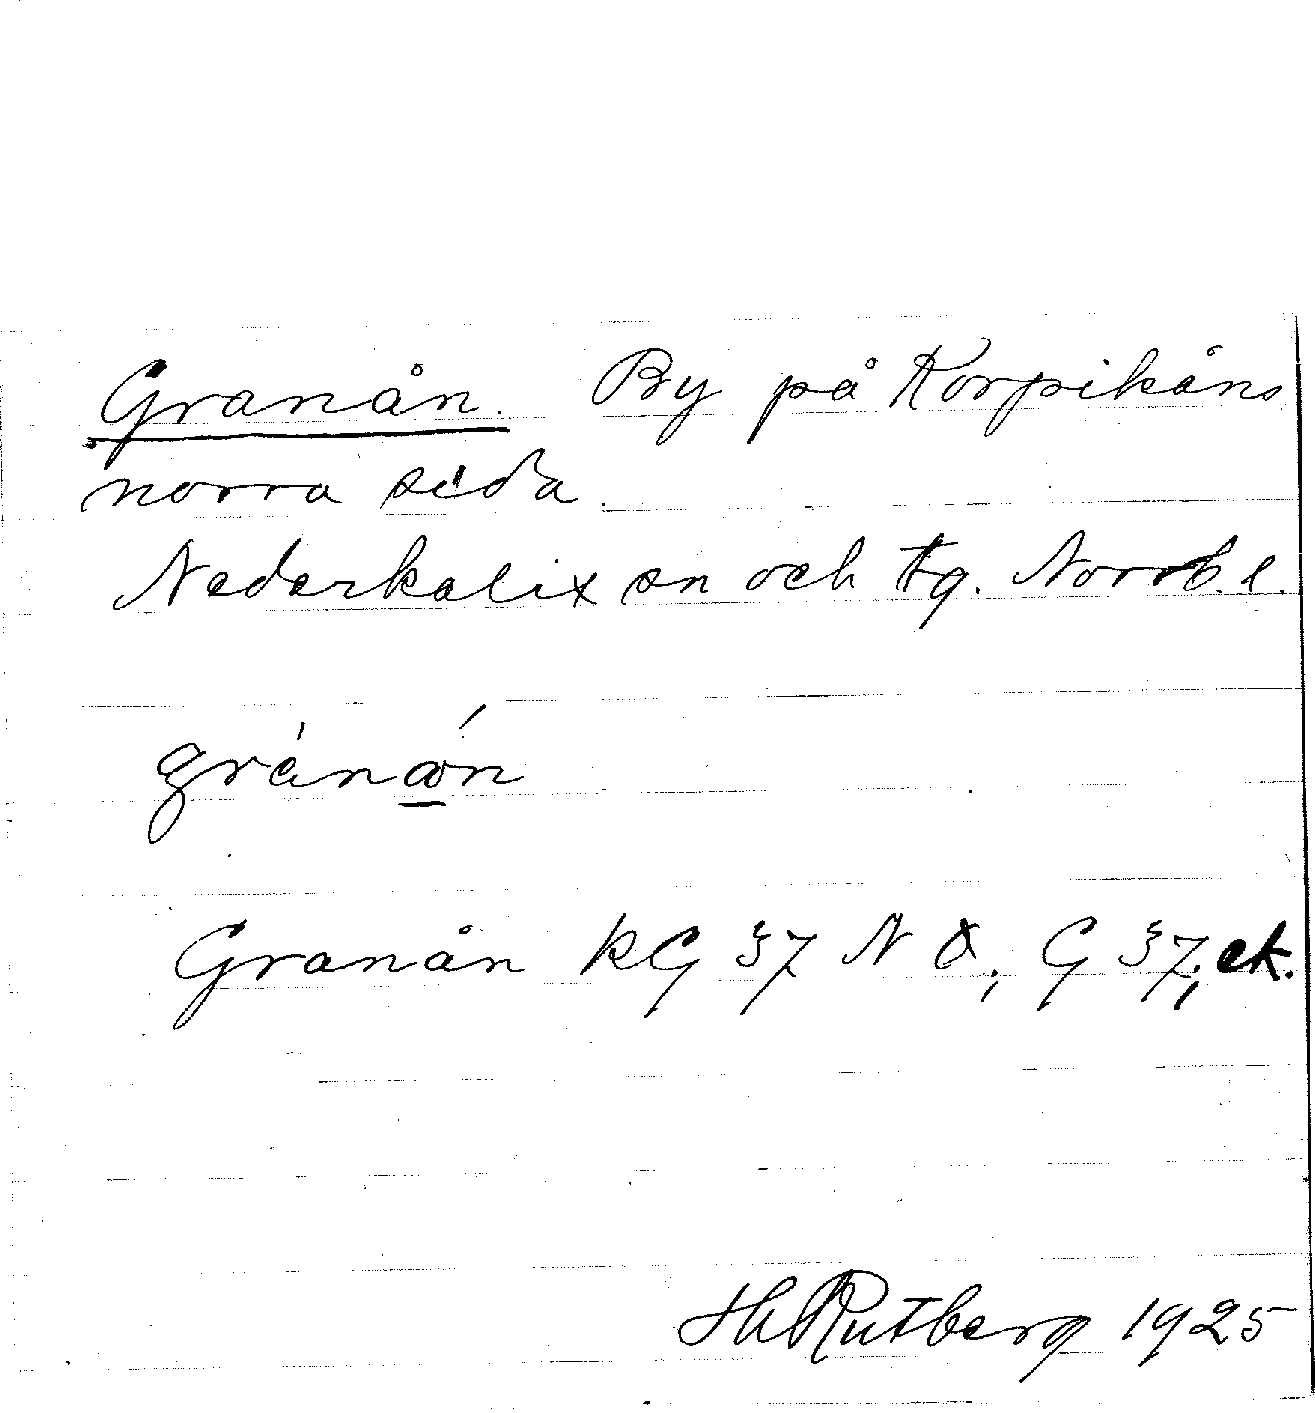 Granån. By på Korpikåns
norra sida.
Nederkalix sn och tg. Norrb. l.
Granån kG 37 N Ö; G 37; ek.
Hj Rutberg 1925